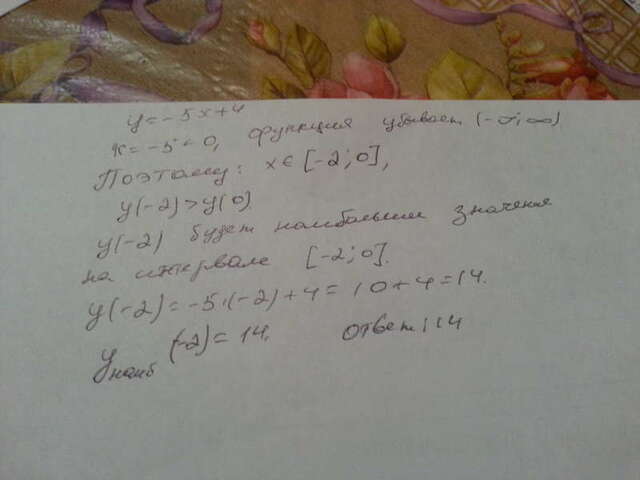 y = -5x+4
К = -5 < 0, функция убывает (-∞; ∞)
Поэтому: x ∈ [-2; 0],
y(-2) > y(0).
y(-2) будет наибольшим значение
на интервале [-2; 0].
y(-2) = -5·(-2)+4 = 10+4 = 14.
y наиб (-2) = 14. ответ: 14